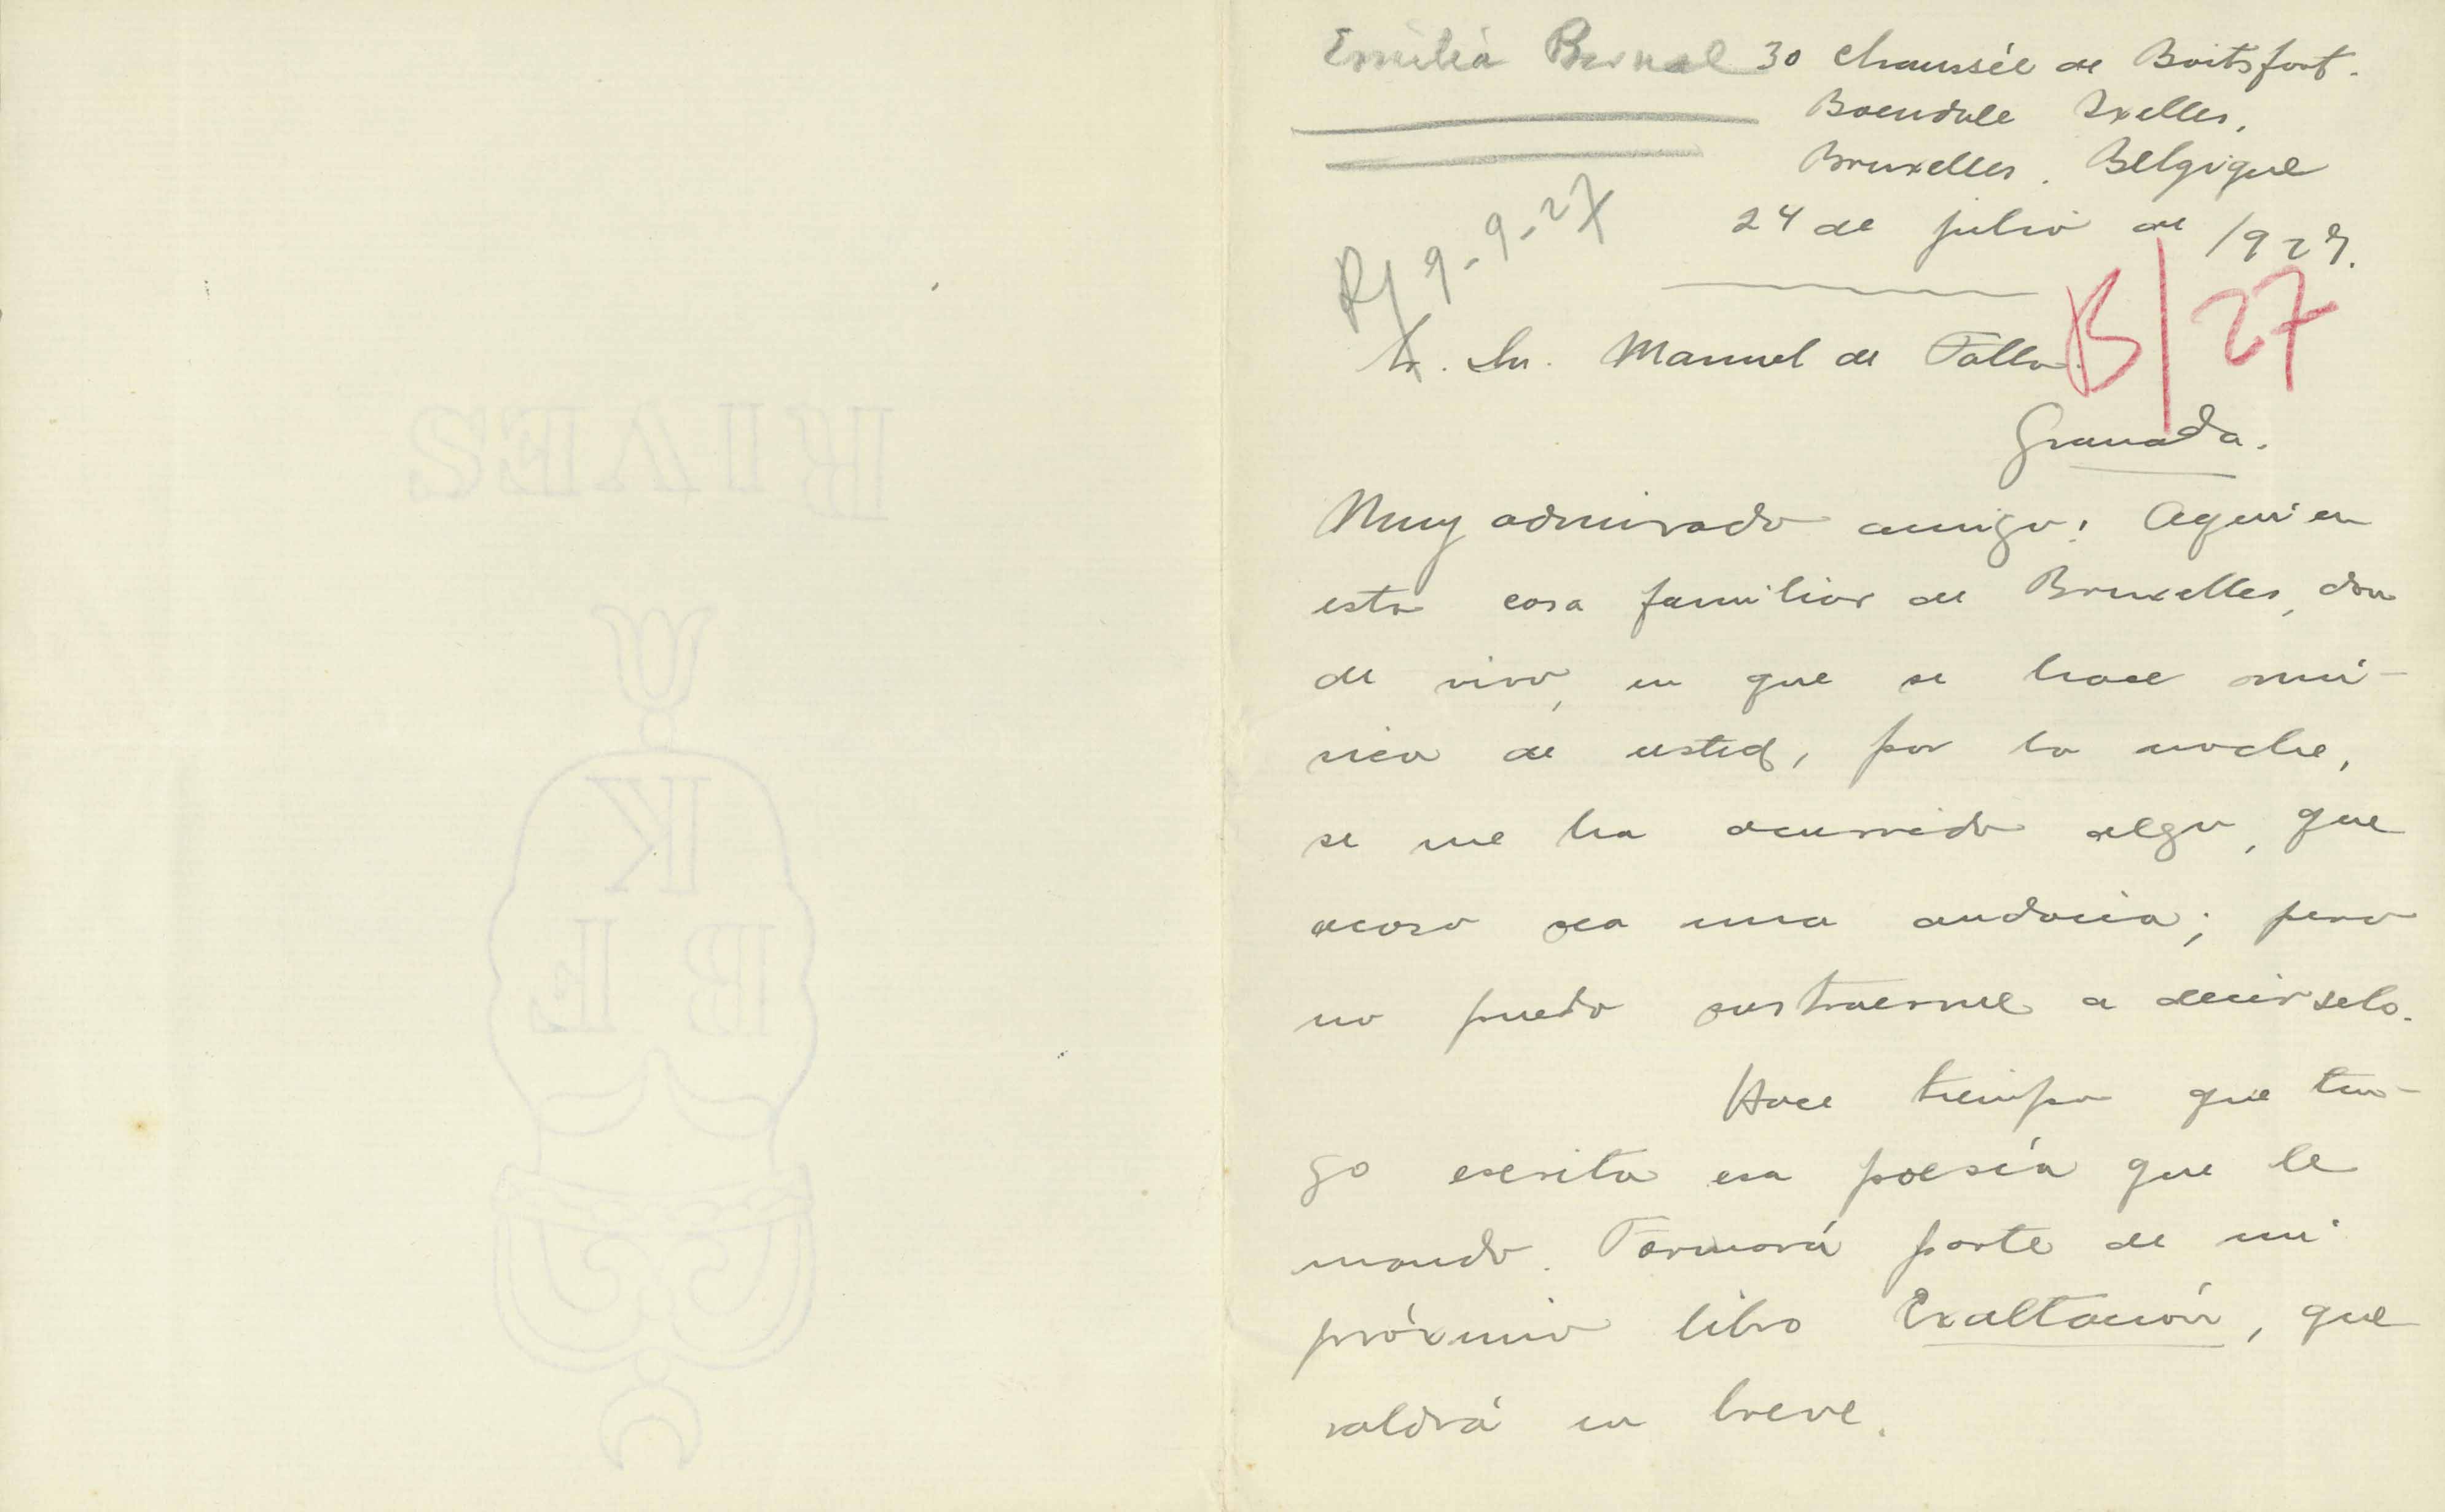 Emilia Bernal
30 Chaussée de Boitsfort.
Boendale Ixelles,
Bruxelles. Belgique
24 de julio de 1927.
R/ 9-9-27
B/27
Sr. Dn. Manuel de Falla.
Granada.
Muy admirado amigo: Aquí en
esta casa familiar de Bruxelles, don
de vivo, en que se hace mú-
sica de usted, por la noche,
se me ha ocurrido algo, que
acaso sea una audacia; pero
no puedo sustraerme a decírselo.
Hace tiempo que ten-
go escrita esa poesía que le
mando. Formará parte de mi
próximo libro Exaltación, que
saldrá en breve.
RIVES
K
BF